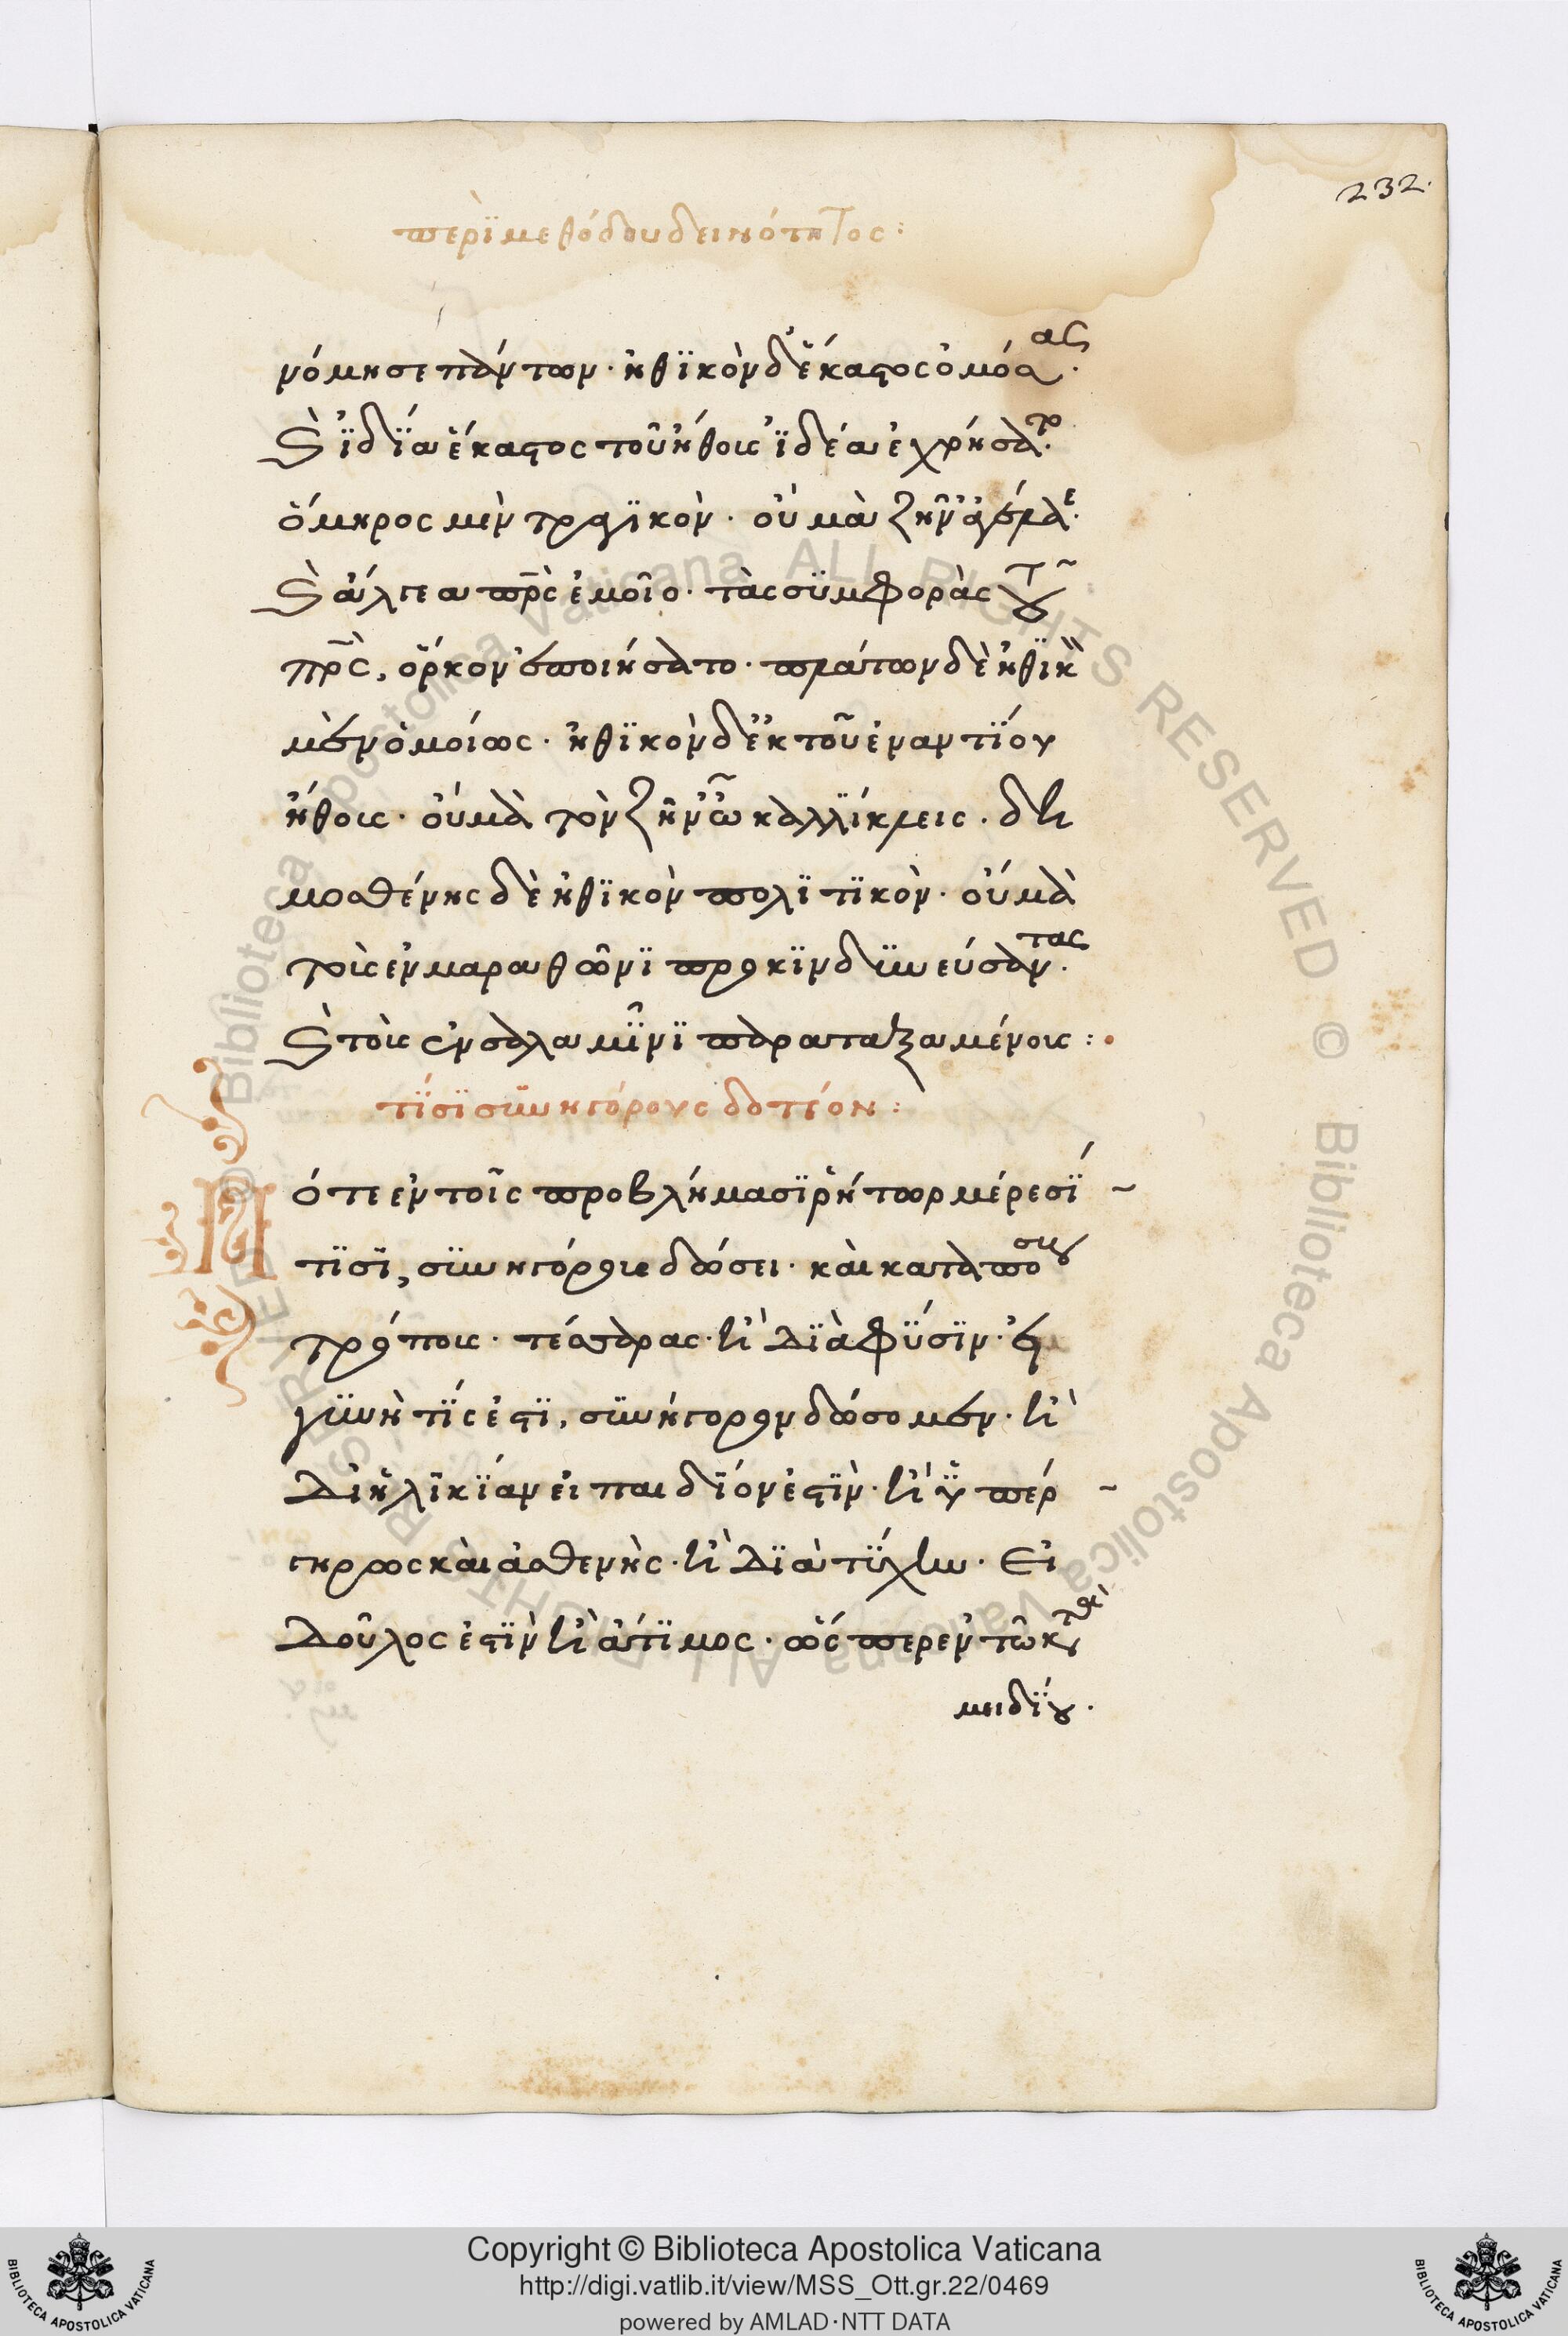 232.
περὶ μεθόδου δεινότητος:
νόμησε πάντων· ἠθϊκὸν δ' ἕκαστος ὀμόσας·
καὶ ἰδία ἕκαστος τοῦ ἤθους ἰδέαν ἐχρήσατο·
ὅμηρος μὲν τραγϊκὸν· οὐ μὰ ζῆν' ἀγέλαε·
καὶ ἄλγεα πρὸς ἐμοῖο· τὰς συμφορὰς τοῦ
πρς, ὅρκον ἐποιήσατο· πλάτων δὲ ἠθϊκὸν
μὲν ὁμοίως· ἠθϊκὸν δ' ἐκ τοῦ ἐναντίου
ἤθους· οὐ μὰ τὸν ζῆν' ὦ καλλίκλεις· δη
μοσθένης δὲ ἠθϊκὸν πολιτϊκὸν· οὐ μὰ
τοὺς ἐν μαραθῶνι προκινδυνεύσαντας·
καὶ τοὺς ἐν σαλαμῖνι παραταξαμένους:
τίσϊ συνηγόρους δοτέον:
Πότε ἐν τοῖς προβλήμασϊ ῥήτωρ μέρεσϊ
τισὶ, συνηγόρους δώσει· καὶ κατὰ πόσους
τρόπους· τέσσαρας· ἢ διὰ φύσϊν·
γυνὴ τίς ἐστϊ, συνήγορον δώσομεν· ἢ
δι' ἡλικίαν εἰ παιδίον ἐστὶν· ἢ ὑπέρ
γηρως καὶ ἀσθενὴς· ἢ διὰ τύχην· Εἰ
δοῦλος ἐστὶν ἢ ἄτιμος· ὥσπερ ἐν τῶ κατὰ
μειδίου·
Copyright © Biblioteca Apostolica Vaticana
http://digi.vatlib.it/view/MSS_Ott.gr.22/0469
powered by AMLAD·NTT DATA